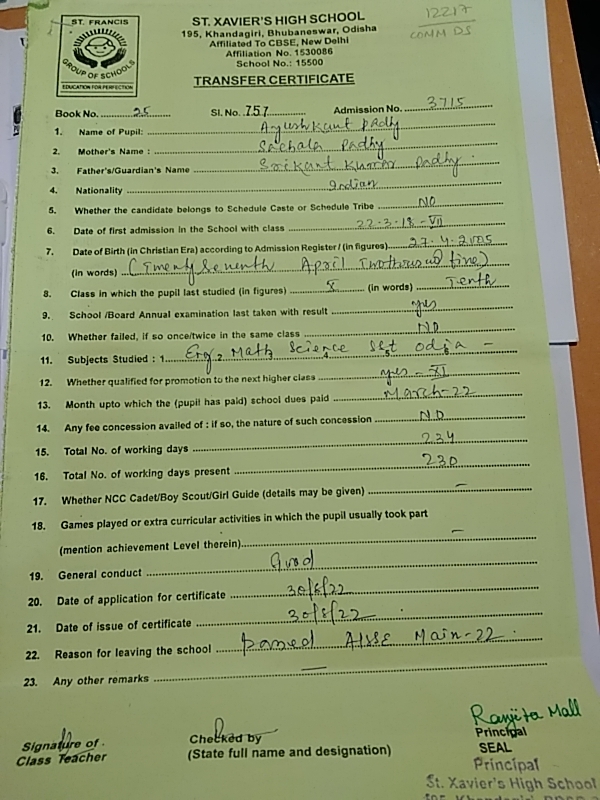 ST. FRANCIS
GROUP OF SCHOOLS
EDUCATION FOR PERFECTION
ST. XAVIER'S HIGH SCHOOL
195, Khandagiri, Bhubaneswar, Odisha
Affiliated To CBSE, New Delhi
Affiliation No. 1530086
School No.: 15500
12217
COMM DS
TRANSFER CERTIFICATE
Book No. 25 Sl. No. 757 Admission No. 3715
1. Name of Pupil: Ayush Kant Padhy
2. Mother's Name : Sachala Padhy
3. Father's/Guardian's Name Srikant Kumar Padhy
4. Nationality Indian
5. Whether the candidate belongs to Schedule Caste or Schedule Tribe NO
6. Date of first admission in the School with class 22-3-18-VII
7. Date of Birth (in Christian Era) according to Admission Register / (in figures) 27.4.2005
(in words) (Twenty Seventh April Two thousand five)
8. Class in which the pupil last studied (in figures) X (in words) Tenth
9. School /Board Annual examination last taken with result yes
10. Whether failed, if so once/twice in the same class NO
11. Subjects Studied : 1. Eng 2 Math Science 4 SSt 5 Odia 6 -
12. Whether qualified for promotion to the next higher class yes - XI
13. Month upto which the (pupil has paid) school dues paid March-22
14. Any fee concession availed of : if so, the nature of such concession NO
15. Total No. of working days 234
16. Total No. of working days present 230
17. Whether NCC Cadet/Boy Scout/Girl Guide (details may be given) -
18. Games played or extra curricular activities in which the pupil usually took part
(mention achievement Level therein) -
19. General conduct Good
20. Date of application for certificate 30/8/22
21. Date of issue of certificate 30/8/22
22. Reason for leaving the school Passed AISSE Main-22
23. Any other remarks -
Signature of
Class Teacher
Checked by
(State full name and designation)
Ranjita Mall
Principal
SEAL
Principal
St. Xavier's High School
195, Khandagiri